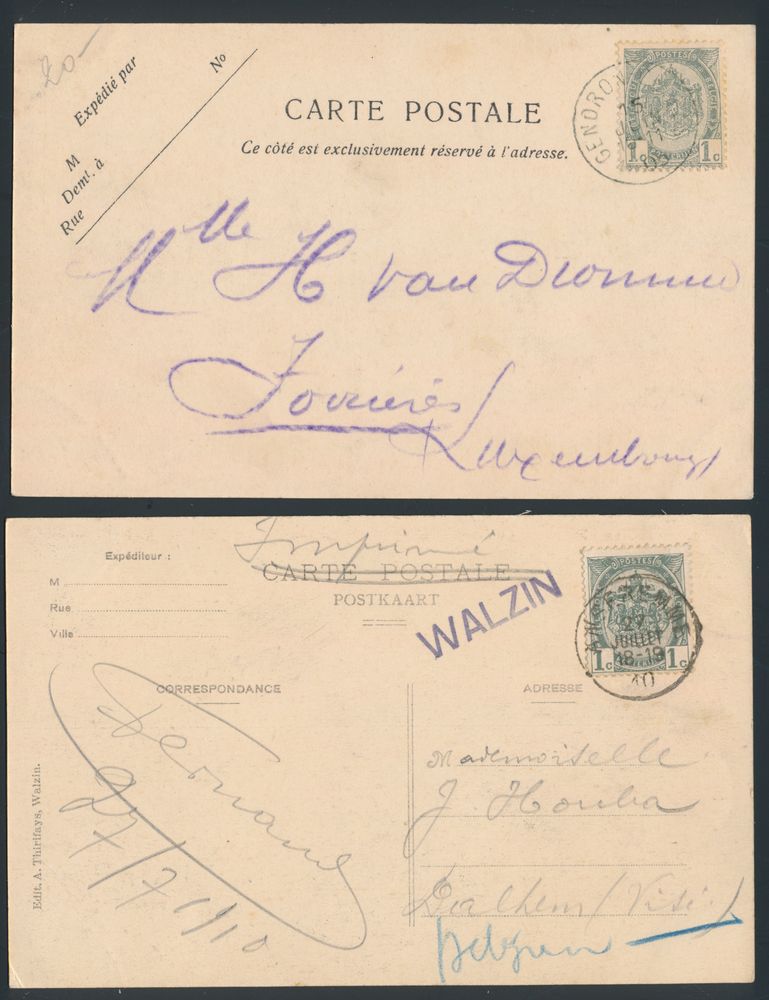 20-
Expédié par
No
M
Demt. à
Rue
CARTE POSTALE
Ce côté est exclusivement réservé à l'adresse.
POSTES
1c 1c
GENDRON
Mlle H van
Forrières
Luxembourg
Expéditeur :
M
Rue
Ville
Imprimé
CARTE POSTALE
POSTKAART
WALZIN
POSTES
1c 1c
27
JUILLET
18-19
10
CORRESPONDANCE
ADRESSE
Fernand
27/7/1910
Mademoiselle
J Houba
Dalhem (Visé)
Edit. A. Thirifays, Walzin.